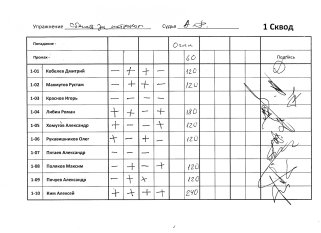 Упражнение Судья А 1 Сквод
Попадание - Очки
Промах - 60 Подпись
1-01 Кобелев Дмитрий — + + — 120
1-02 Махмутов Рустам — + + — 120
1-03 Краснов Игорь — — — —
1-04 Любин Роман + + — + 180
1-05 Хомутов Александр + — — + 120
1-06 Рукавишников Олег + — + — 120
1-07 Потаев Александр — — — —
1-08 Поляков Максим — + — + 120
1-09 Пичуев Александр — + × 120
1-10 Ким Алексей + + + + 240